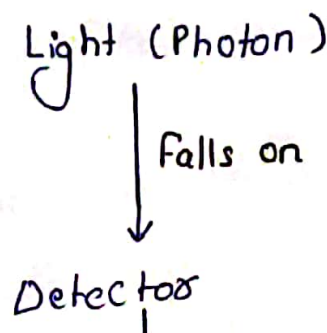 Light (Photon)
Falls on
Detector